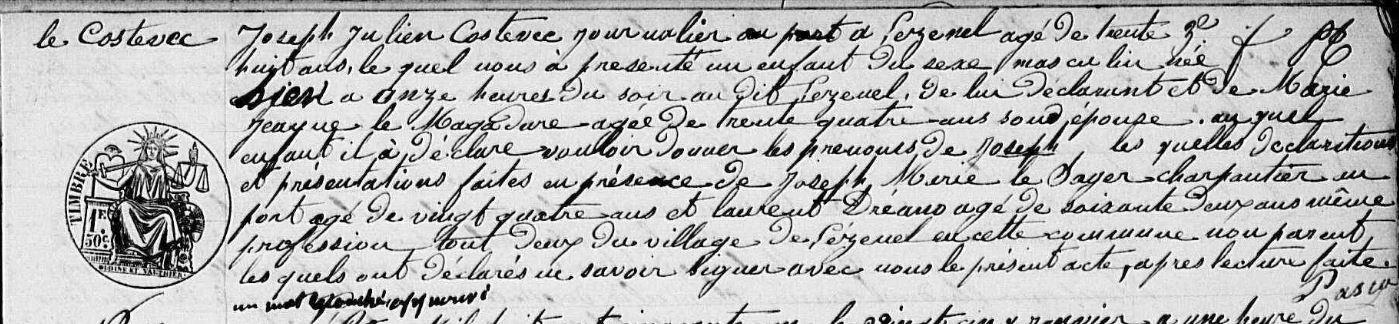 le Costevec
Joseph Julien Costevec journalier au port a Lezenel agé de trente
huit ans, le quel nous à présenté un enfant du sexe masculin née
hier a onze heures du soir au dit Lezenel, de lui déclarant et de Marie
Jeanne le Magadure agee de trente quatre ans son épouse. au quel
enfant il à déclaré vouloir donner les prenoms de Joseph les quelles déclarations
et présentations faites en présence de Joseph Marie le Sayer charpantier au
port agé de vingt quatre ans et laurent Dreano agé de soixante deux ans même
profession, tout deux du village de Lézenel en cette commune non parent
les quels ont déclarés ne savoir signer avec nous le présent acte, apres lecture faite.
un mot approuvé
TIMBRE
1E
50C